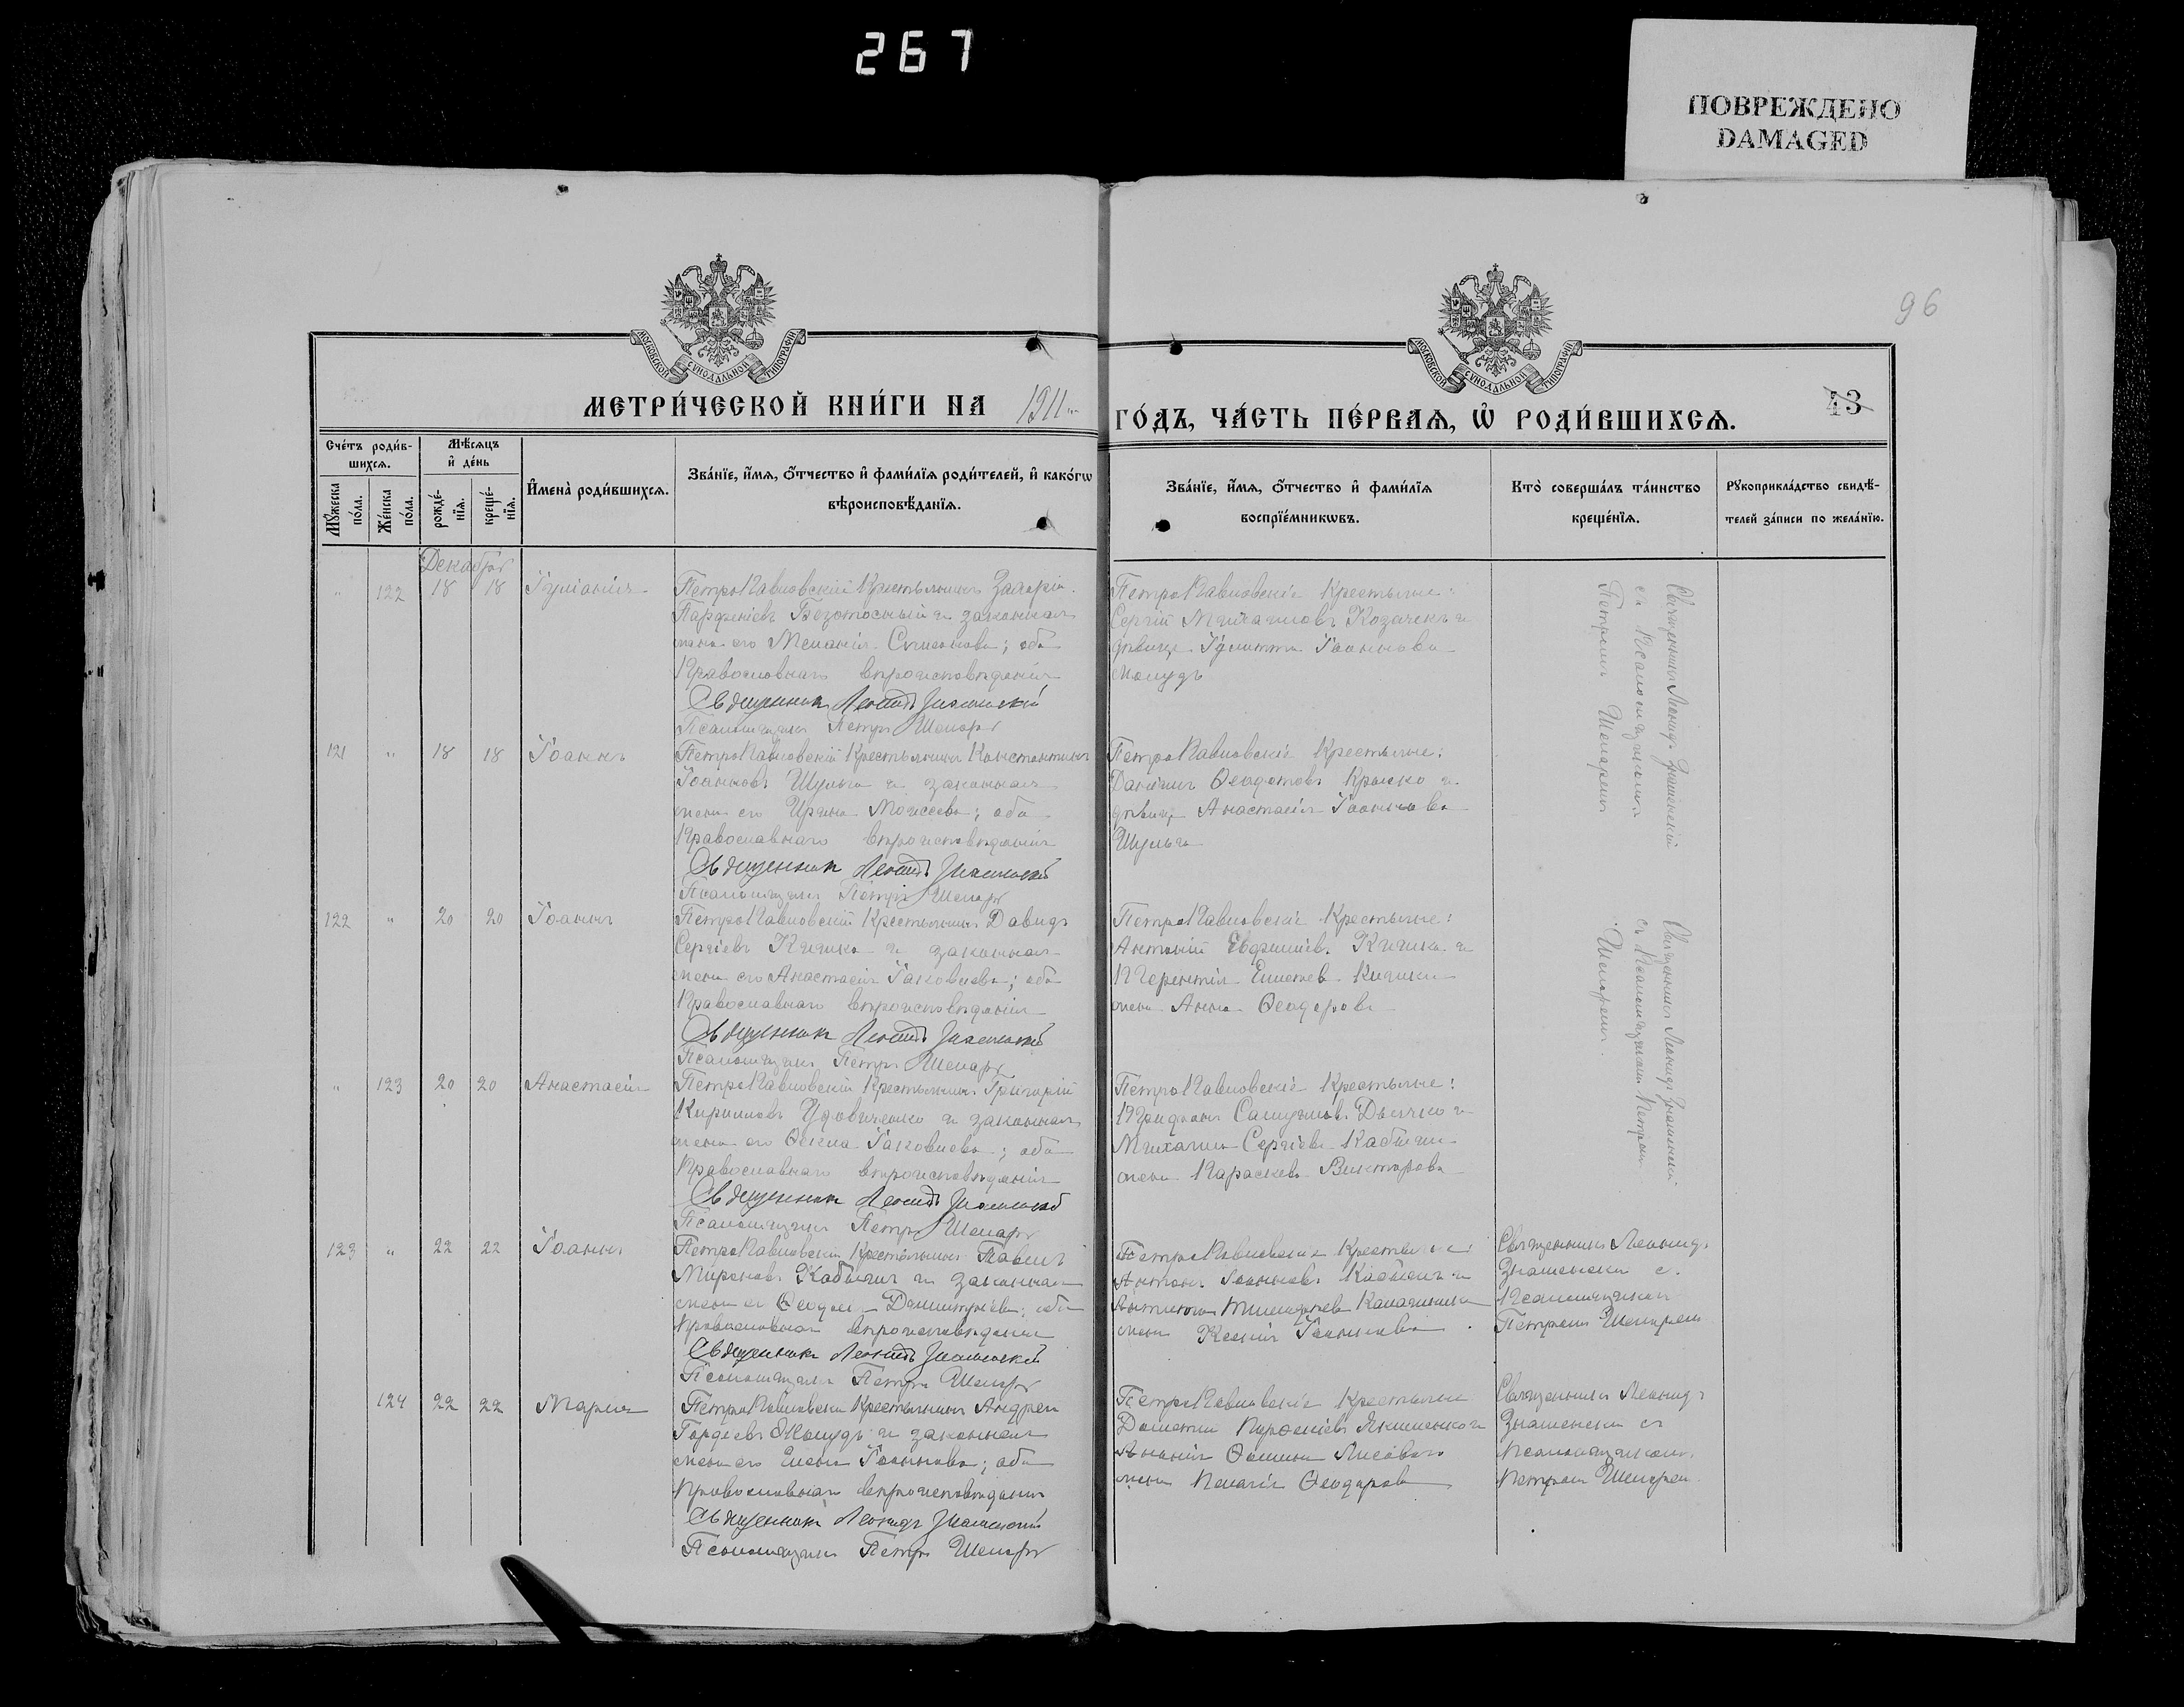 267
ПОВРЕЖДЕНО
DAMAGED
96
МОСКОВСКОЙ СУНОДАЛЬНОЙ ТИПОГРАФІИ
МОСКОВСКОЙ СУНОДАЛЬНОЙ ТИПОГРАФІИ
МЕТРИ́ЧЕСКОЙ КНИ́ГИ НА 1911
ГО́ДЪ, ЧА́СТЬ ПЕ́РВАѦ, Ѡ҆ РОДИ́ВШИХСѦ.
43
Сче́тъ роди́в-
шихсѧ.
Мꙋ́жеска
по́ла.
Же́нска
по́ла.
Мѣ́сѧцъ
и҆ де́нь
рожде́-
нїѧ.
креще́-
нїѧ.
И҆мена̀ роди́вшихсѧ.
Зва́нїе, и҆́мѧ, ѻ҆́тчество и҆ фами́лїѧ роди́телей, и҆ како́гѡ
вѣроисповѣ́данїѧ.
Зва́нїе, и҆́мѧ, ѻ҆́тчество и҆ фами́лїѧ
воспрїе́мникѡвъ.
Кто̀ соверша́лъ та́инство
креще́нїѧ.
Рꙋкоприкла́дство свидѣ́-
телей за́писи по жела́нїю.
Декабрь
" 122 18 18 Іуліанія
ПетроПавловскій Крестьянинъ Захарія
Парфеніевъ Безотосный и законная
жена его Меланія ; оба
Православнаго вѣроисповѣданія
Священникъ Леонидъ Знаменскій
Псаломщикъ Петръ Шепарь
ПетроПавловскіе Крестьяне:
Сергій Михаиловъ Козаченъ и
дѣвица Іулитта Іоаннова
Священникъ Леонидъ Знаменскій
съ Псаломщикомъ
Петромъ Шепаремъ
121 " 18 18 Іоаннъ
ПетроПавловскій Крестьянинъ Константинъ
Іоанновъ Шульга и законная
жена его Ирина Моисеева; оба
Православнаго вѣроисповѣданія
Священникъ Леонидъ Знаменскій
Псаломщикъ Петръ Шепарь
ПетроПавловскіе Крестьяне:
Даніилъ Ѳеодотовъ и
дѣвица Анастасія Іоаннова
Шульга
122 " 20 20 Іоаннъ
ПетроПавловскій Крестьянинъ Давидъ
Сергіевъ Кичика и законная
жена его Анастасія Іаковлева; оба
Православнаго вѣроисповѣданія
Священникъ Леонидъ Знаменскій
Псаломщикъ Петръ Шепарь
ПетроПавловскіе Крестьяне:
Антоній Кичика и
Кичики
жена Анна Ѳеодорова
Священникъ Леонидъ Знаменскій
съ Псаломщикомъ Петромъ
Шепаремъ
" 123 20 20 Анастасія
ПетроПавловскій Крестьянинъ Григорій
Кирилловъ Удовиченко и законная
жена его Ѳекла Іаковлева; оба
Православнаго вѣроисповѣданія
Священникъ Леонидъ Знаменскій
Псаломщикъ Петръ Шепарь
ПетроПавловскіе Крестьяне:
Самуиловъ Дьячко и
Михаила Сергіева
жена Параскева Викторова
123 " 22 22 Іоаннъ
ПетроПавловскій Крестьянинъ Павелъ
Мироновъ и законная
жена Димитріева; оба
Православнаго вѣроисповѣданія
Священникъ Леонидъ Знаменскій
Псаломщикъ Петръ Шепарь
ПетроПавловскіе Крестьяне
Антонъ Іоанновъ и
жена Ксенія Іоаннова
Священникъ Леонидъ
Знаменскій с
Псаломщикомъ
Петромъ Шепаремъ
124 22 22 Марія
ПетроПавловскій Крестьянинъ Андрей
Гордіевъ и законная
жена его Елена Іоаннова; оба
Православнаго вѣроисповѣданія
Священникъ Леонидъ Знаменскій
Псаломщикъ Петръ Шепарь
ПетроПавловскіе Крестьяне
Дометій и
Лисового
жена Пелагія Ѳеодорова
Священникъ Леонидъ
Знаменскій съ
Псаломщикомъ
Петромъ Шепаремъ